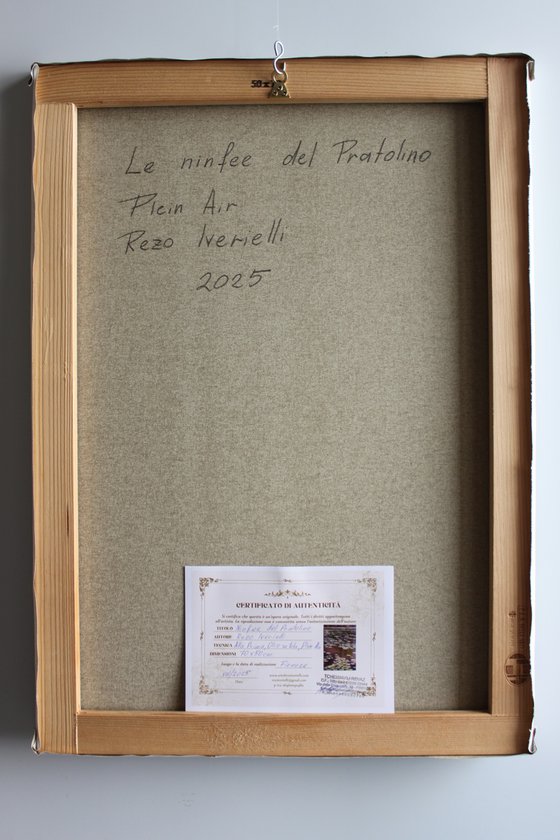 50x
Le ninfee del Pratolino
Plein Air
Rezo Iverielli
2025
CERTIFICATO DI AUTENTICITÀ
Si certifica che questa è un'opera originale. Tutti i diritti appartengono
all'artista. La riproduzione non è consentita senza l'autorizzazione dell'autore
TITOLO Ninfee del Pratolino
AUTORE Rezo Iverieli
TECNICA Alla Prima, Olio su tela, Plein Air
DIMENSIONI 70x50cm
Luogo e la data di realizzazione Firenze